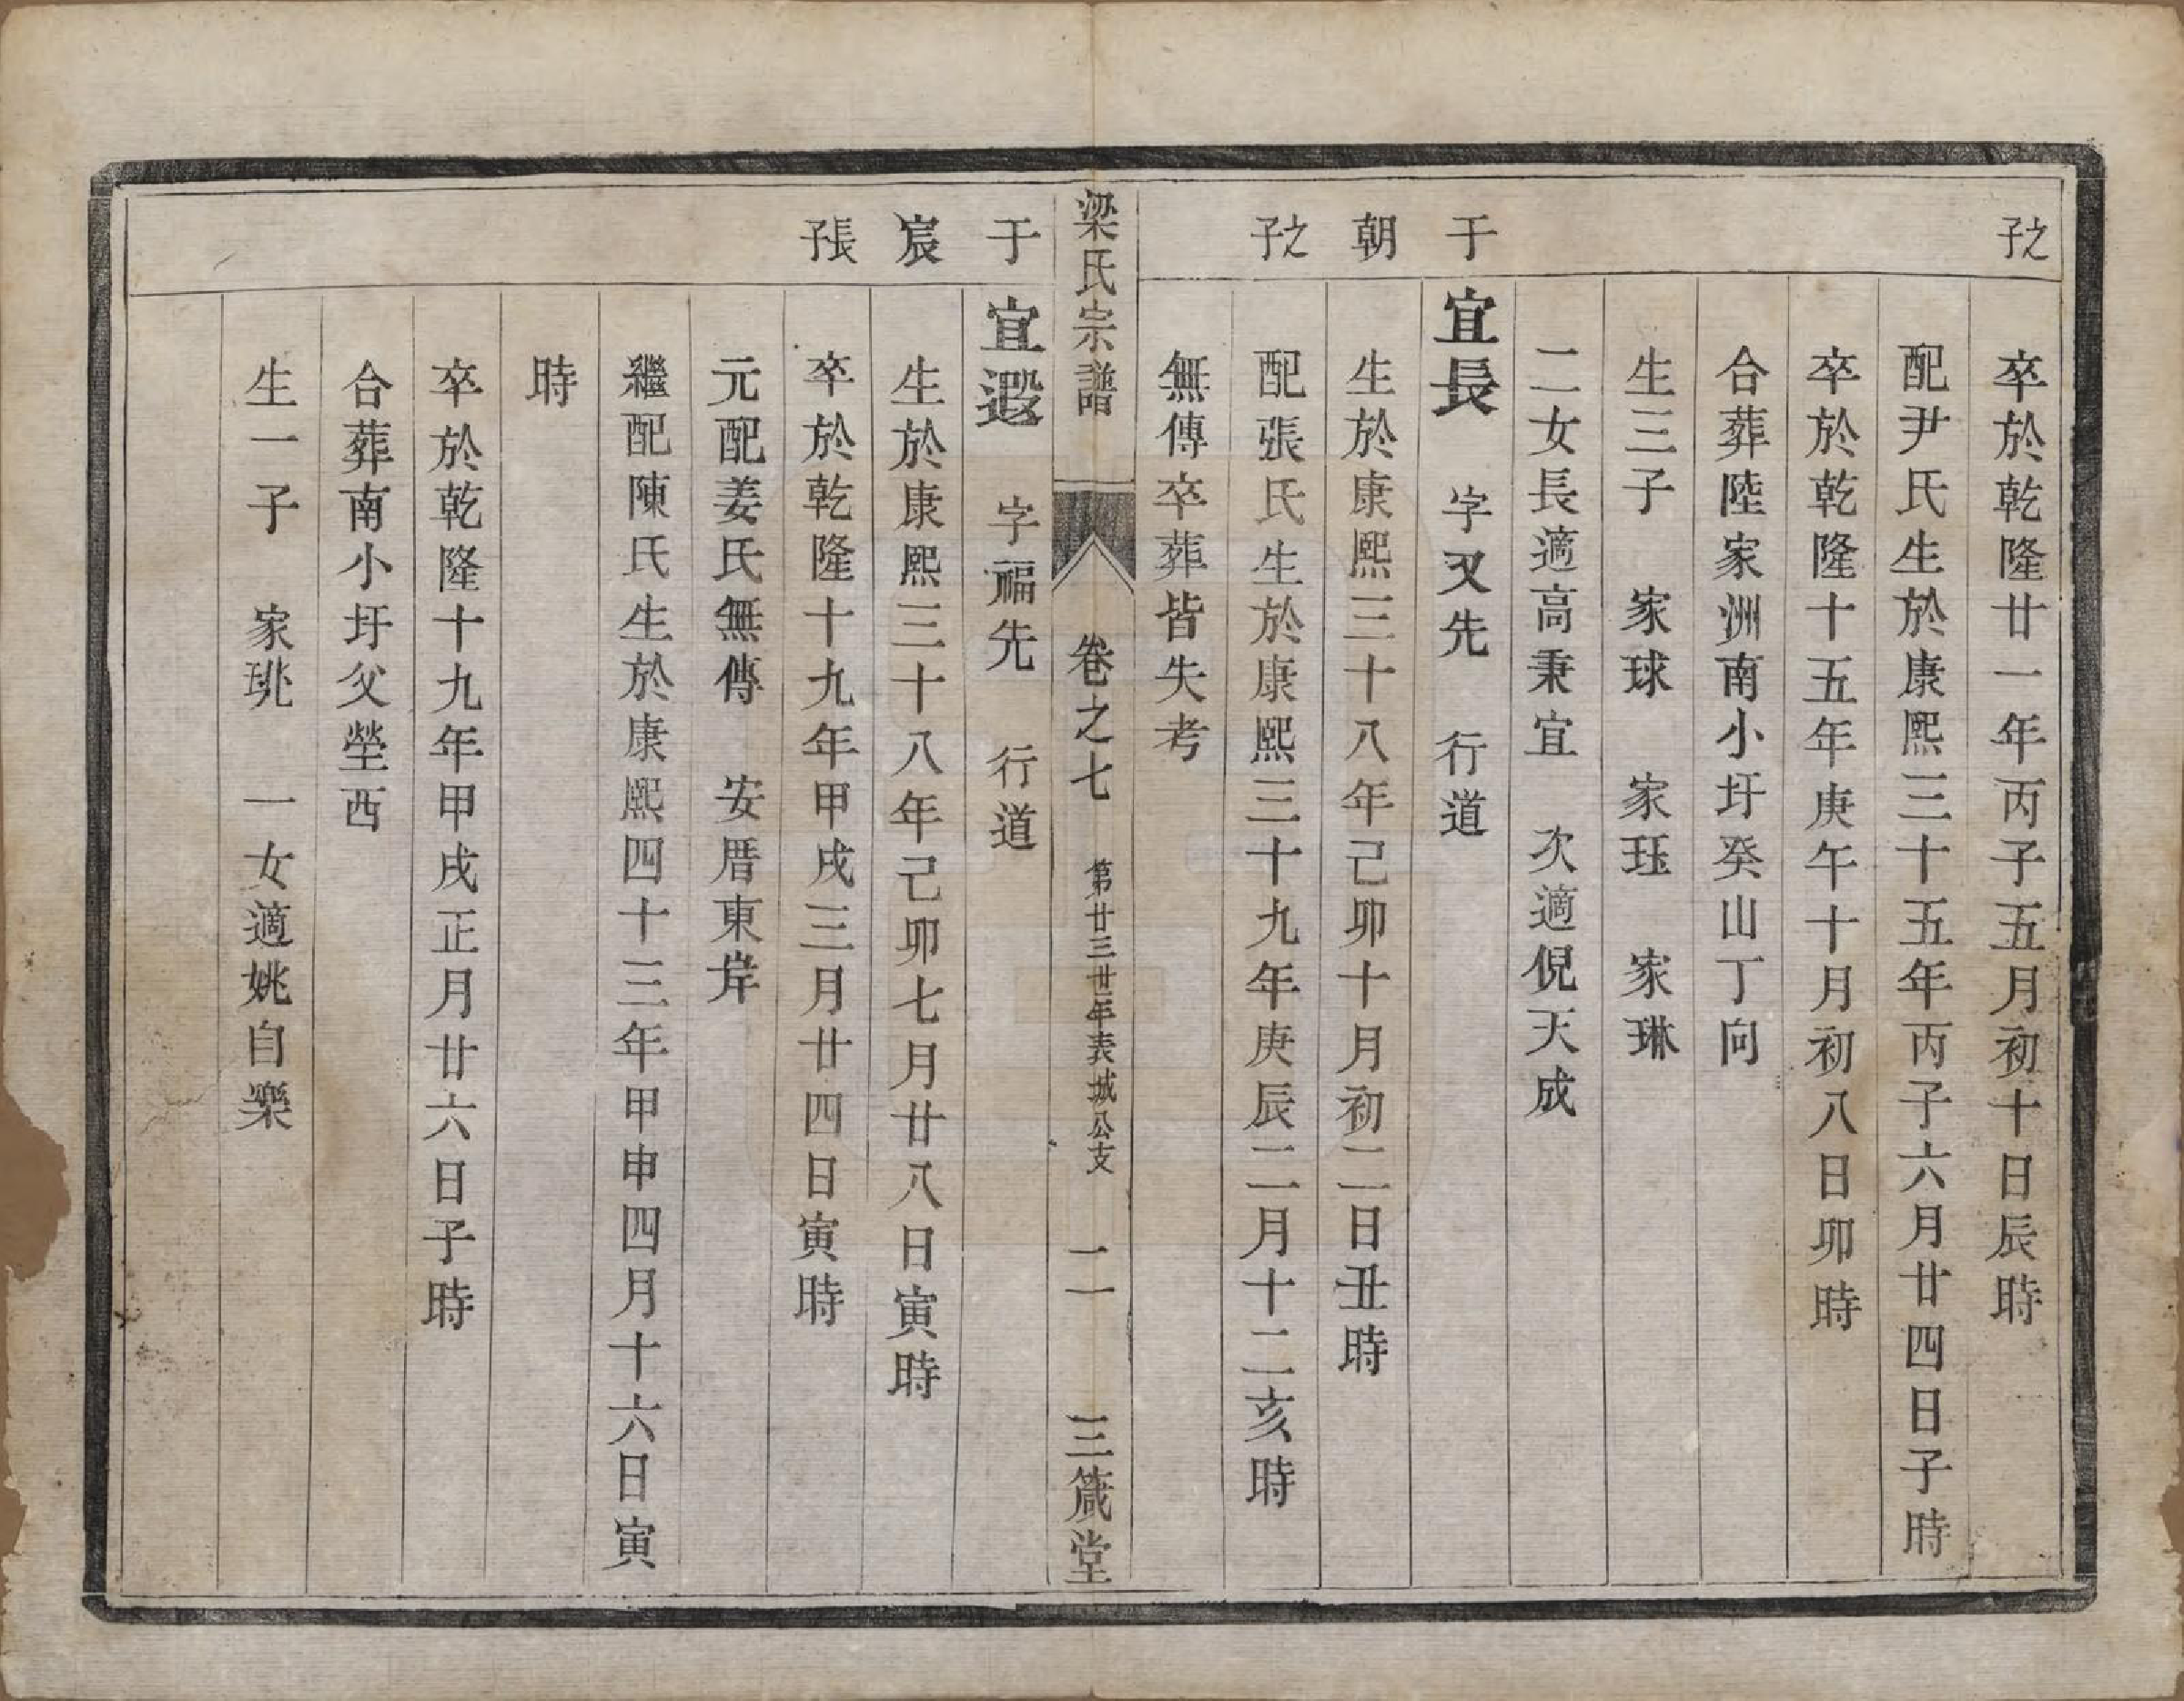 之子
卒於乾隆廿一年丙子五月初十日辰時
配尹氏生於康熙三十五年丙子六月廿四日子時
卒於乾隆十五年庚午十月初八日卯時
合葬陸家洲南小圩癸山丁向
生三子 家球 家珏 家琳
二女長適高秉宜 次適倪天成
于 宜長 字又先 行道
朝 生於康熙三十八年己卯十月初二日丑時
之子 配張氏生於康熙三十九年庚辰二月十二亥時
無傳卒葬皆失考
梁氏宗譜 卷之七 第廿三世年表城公支 二 三箴堂
于 宜遐 字福先 行道
宸 生於康熙三十八年己卯七月廿八日寅時
張子 卒於乾隆十九年甲戌三月廿四日寅時
元配姜氏無傳 安厝東岸
繼配陳氏生於康熙四十三年甲申四月十六日寅
時
卒於乾隆十九年甲戌正月廿六日子時
合葬南小圩父塋西
生一子 家珧 一女適姚自樂